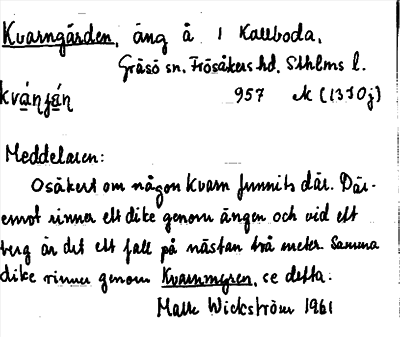 Kvarngärden, äng å 1 Kallboda,
Gräsö sn. Frösåkers hd. Sthlms l.
957 (1370j)
Meddelaren:
Osäkert om någon kvarn funnits där. Där-
emot rinner ett dike genom ängen och vid ett
berg är det ett fall på nästan två meter. Samma
dike rinner genom Kvarnmyren, se detta.
Wickström 1961